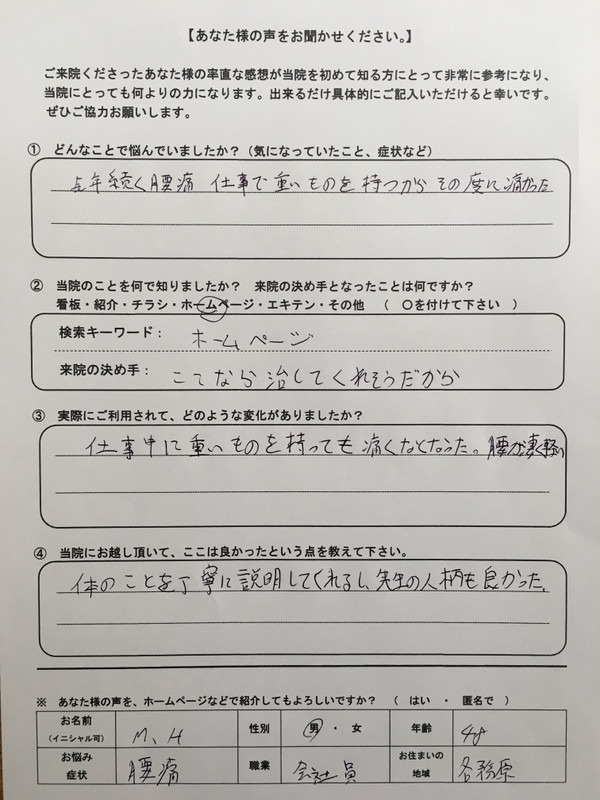 【あなた様の声をお聞かせください。】
ご来院くださったあなた様の率直な感想が当院を初めて知る方にとって非常に参考になり、
当院にとっても何よりの力になります。出来るだけ具体的にご記入いただけると幸いです。
ぜひご協力お願いします。
① どんなことで悩んでいましたか？（気になっていたこと、症状など）
長年続く腰痛 仕事で重いものを持つから その度に痛かった
② 当院のことを何で知りましたか？ 来院の決め手となったことは何ですか？
看板・紹介・チラシ・ホームページ・エキテン・その他 （ ○を付けて下さい ）
検索キーワード： ホームページ
来院の決め手： ここなら治してくれそうだから
③ 実際にご利用されて、どのような変化がありましたか？
仕事中に重いものを持っても痛くなくなった。腰が凄く軽い
④ 当院にお越し頂いて、ここは良かったという点を教えて下さい。
体のことを丁寧に説明してくれるし、先生の人柄も良かった。
※ あなた様の声を、ホームページなどで紹介してもよろしいですか？ （ はい ・ 匿名で ）
お名前（イニシャル可） M、H 性別 男・女 年齢 48
お悩み症状 腰痛 職業 会社員 お住まいの地域 各務原